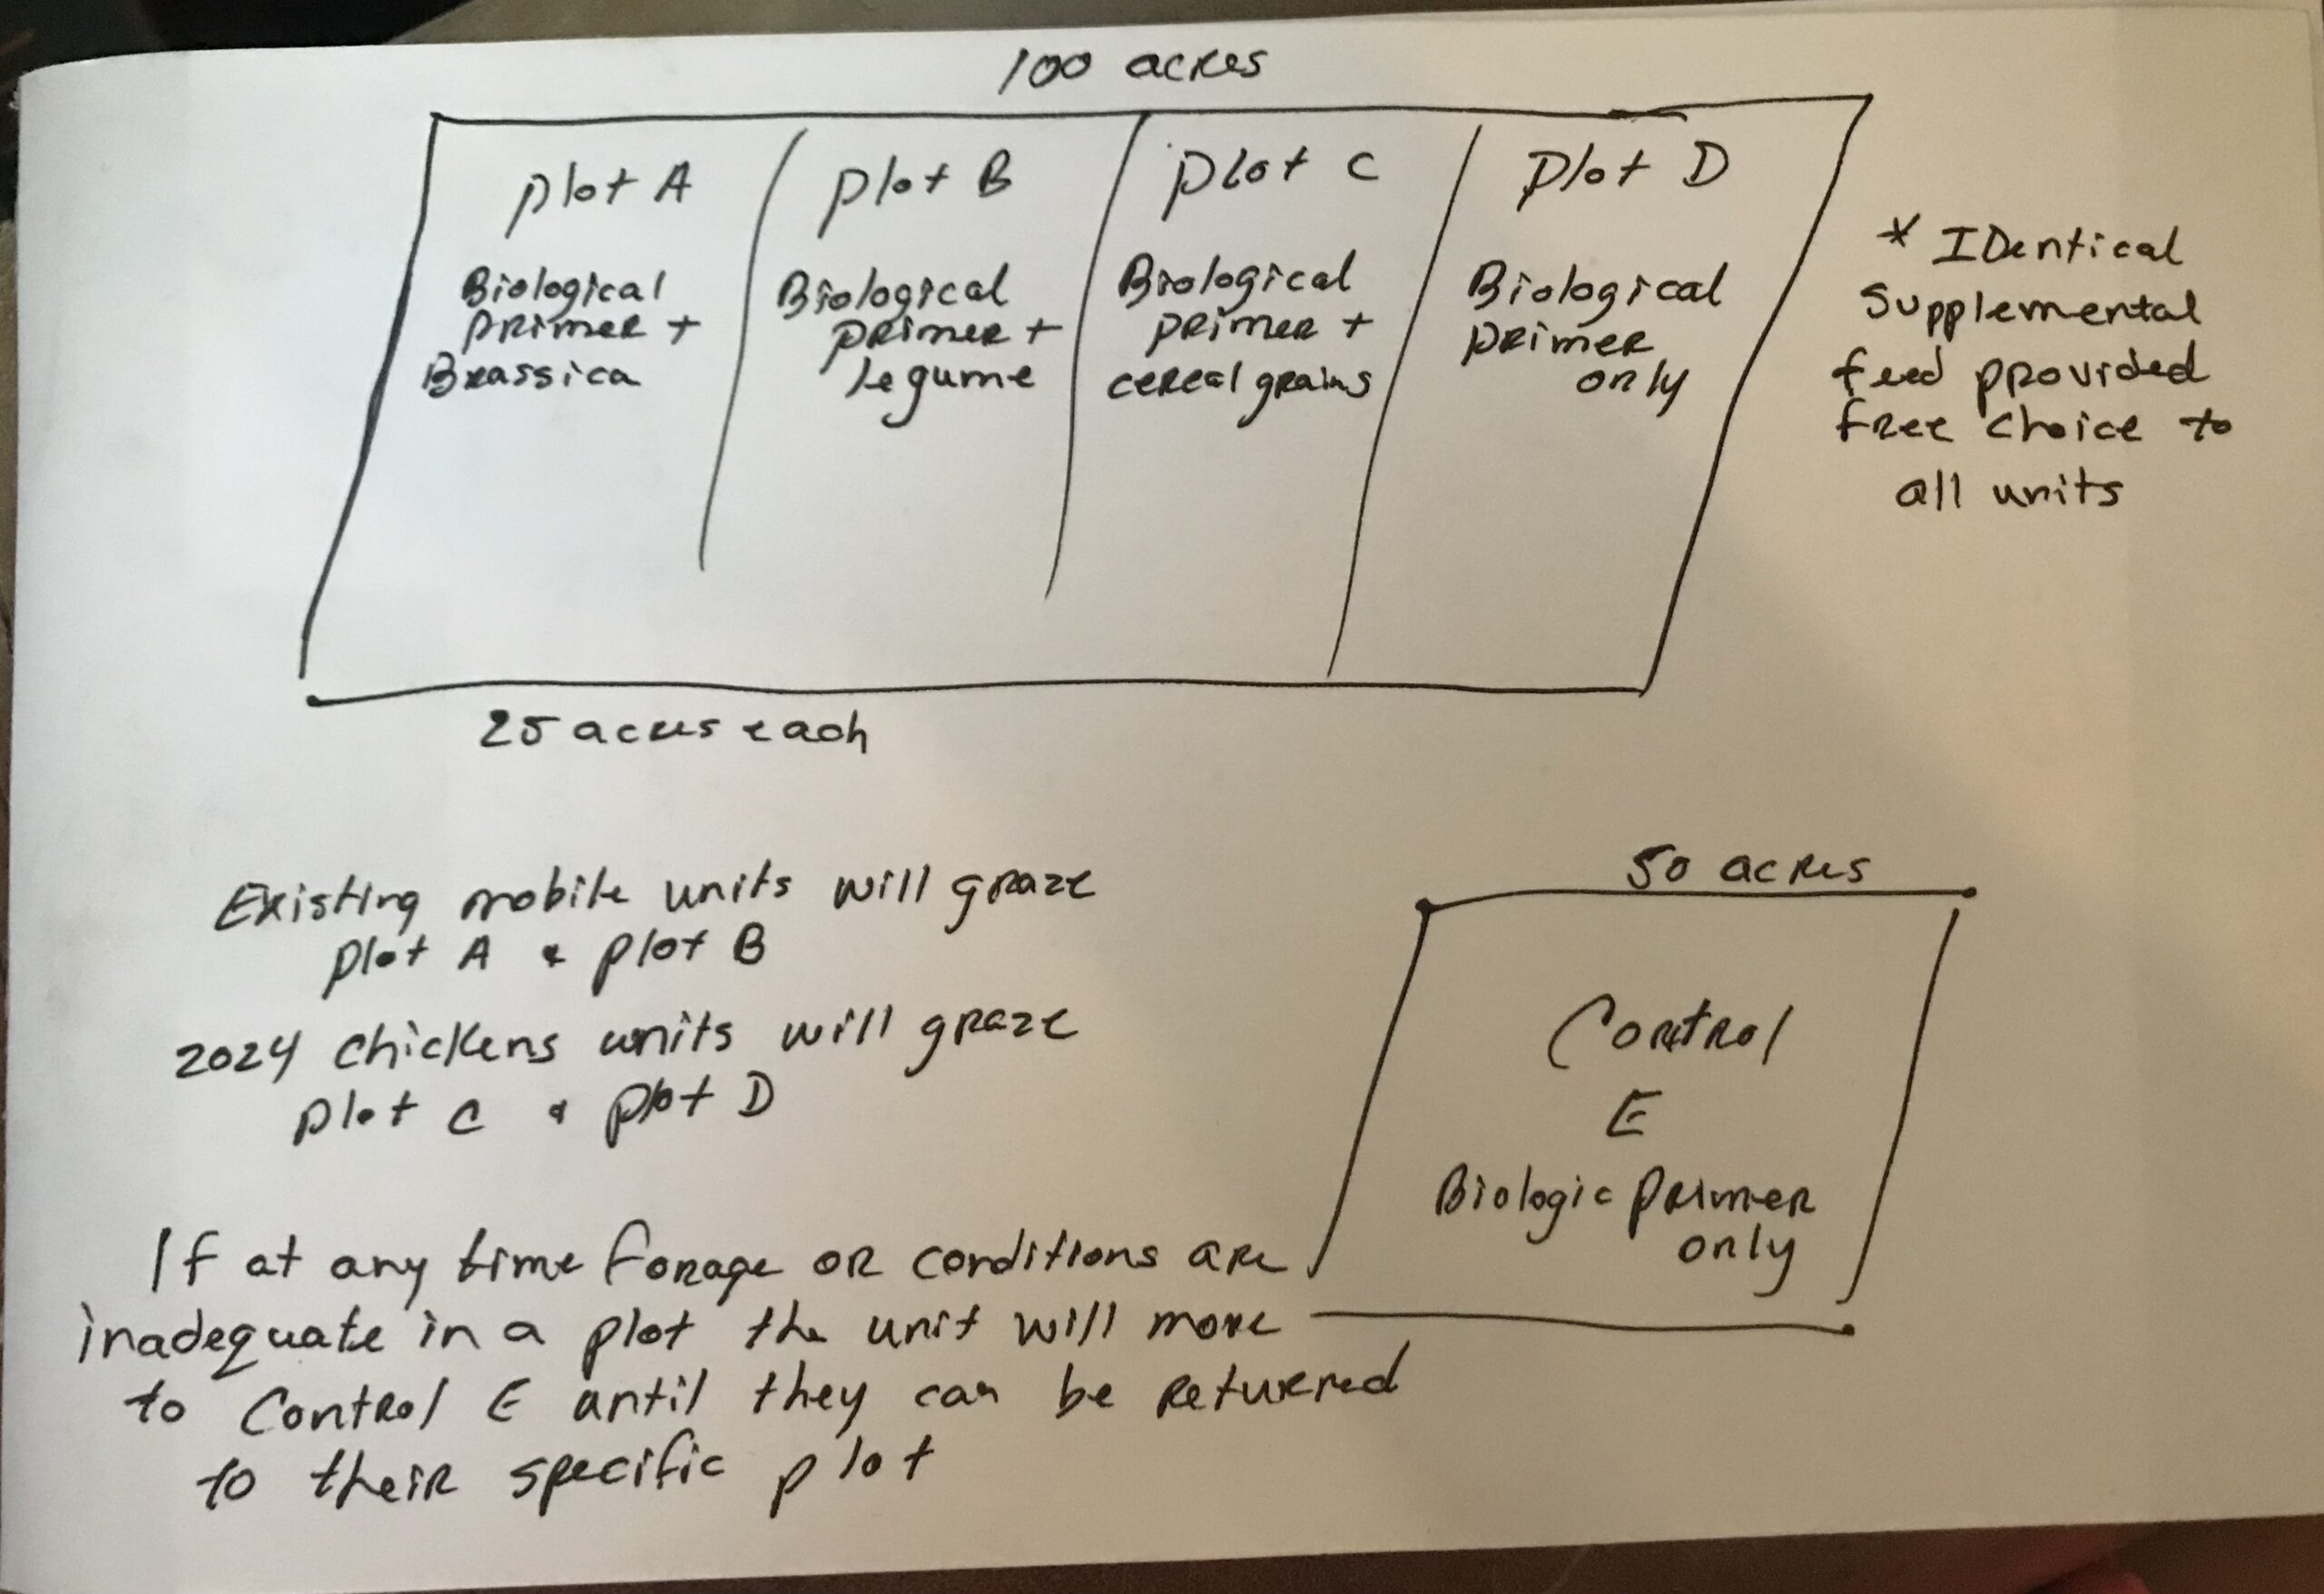 100 acres
plot A
Biological
primer +
Brassica
plot B
Biological
primer +
legume
plot C
Biological
primer +
cereal grains
Plot D
Biological
primer
only
* IDentical
Supplemental
feed provided
free choice to
all units
25 acres each
Existing mobile units will graze
plot A & plot B
2024 chickens units will graze
plot C & plot D
If at any time forage or conditions are
inadequate in a plot the unit will move
to Control E until they can be returned
to their specific plot
50 acres
Control
E
Biologic primer
only